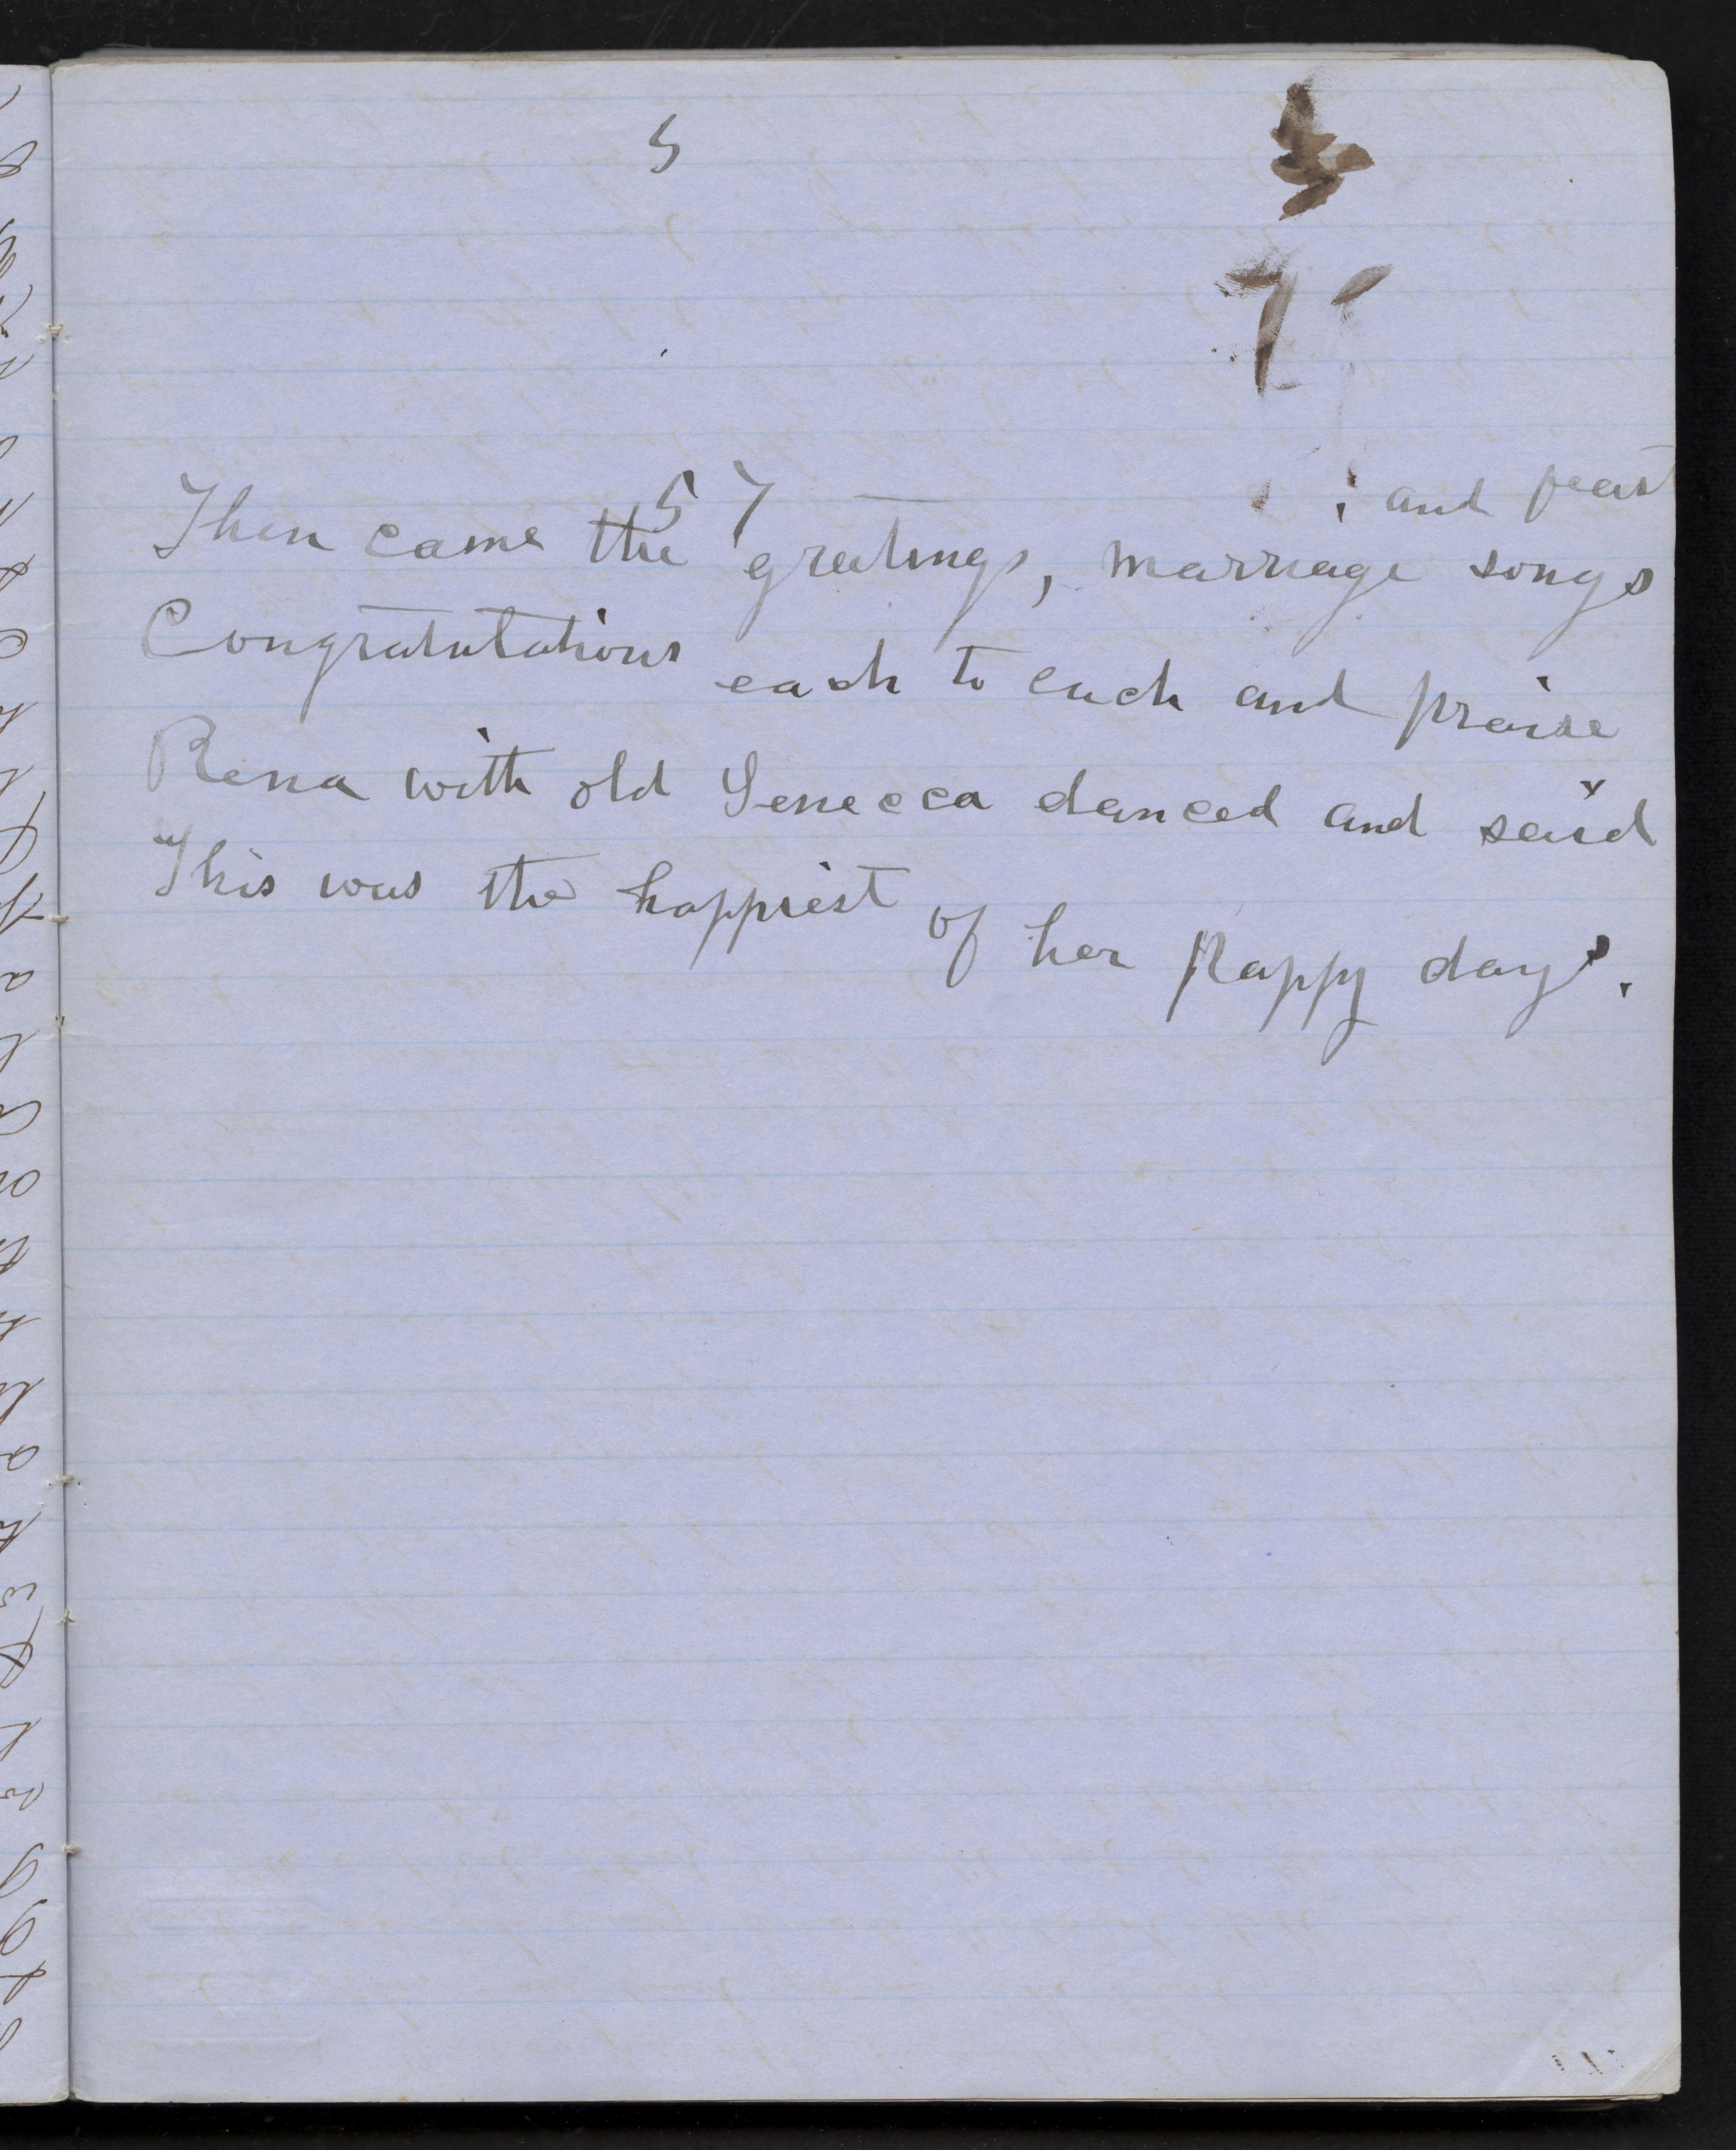 5
57
; and feast
Then came the greetings, marriage songs
Congratulations each to each and praise
Rena with old Senecca danced and said
"This was the happiest of her happy days.